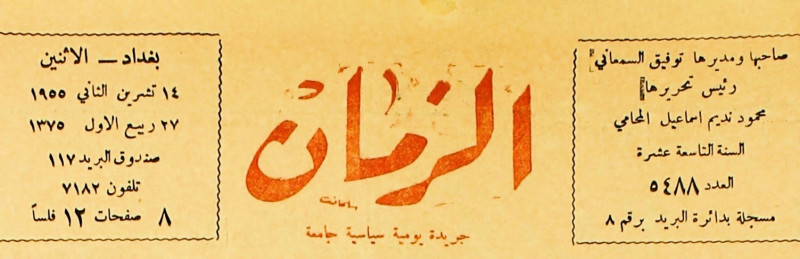 صاحبها ومديرها توفيق السمعاني
رئيس تحريرها
محمود نديم اسماعيل المحامي
السنة التاسعة عشرة
العدد ٥٤٨٨
مسجلة بدائرة البريد برقم ٨
الزمان
جريدة يومية سياسية جامعة
بغداد — الاثنين
١٤ تشرين الثاني ١٩٥٥
٢٧ ربيع الاول ١٣٧٥
صندوق البريد ١١٧
تلفون ٧١٨٢
٨ صفحات ١٢ فلساً